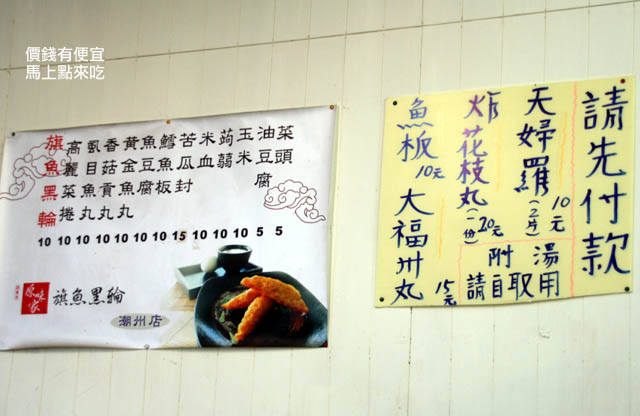 價錢有便宜
馬上點來吃
旗魚黑輪
高麗菜捲
虱目魚丸
香菇貢丸
黃金魚丸
魚豆腐
鱈魚板
苦瓜封
米血
蒟蒻
玉米
油豆腐
菜頭
10 10 10 10 10 10 10 15 10 10 10 5 5
原味家
旗魚黑輪
潮州店
請先付款
天婦羅(2片)10元
炸花枝丸(一份)20元
魚板10元
大福州丸15元
附湯
請自取用